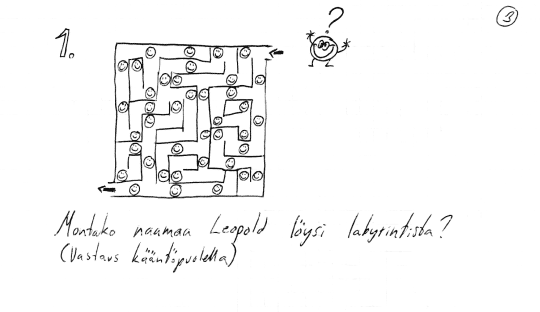 3
?
1.
Montako naamaa Leopold löysi labyrintista?
(Vastaus kääntöpuolella)